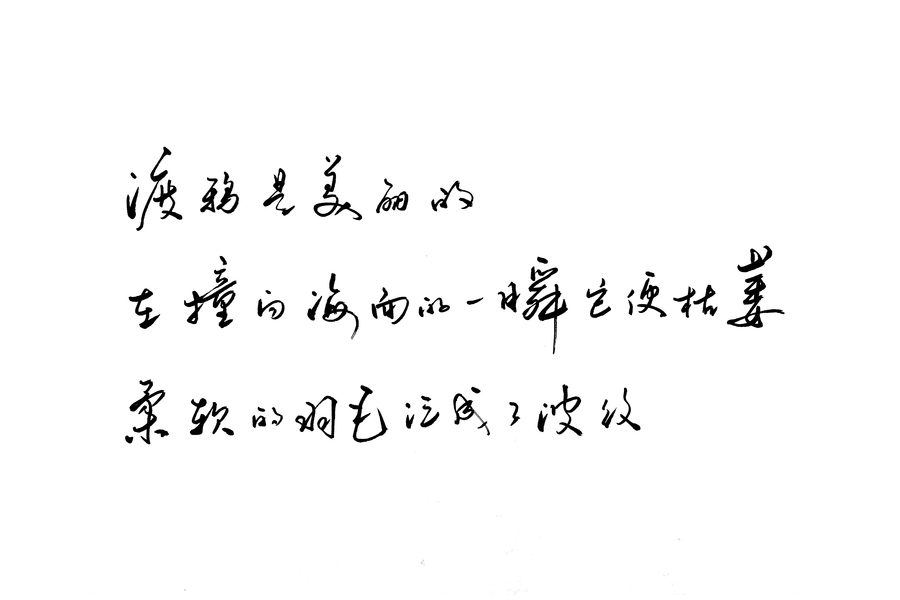 渡鸦是美丽的
在撞向海面的一瞬它便枯萎
柔软的羽毛泛成了波纹